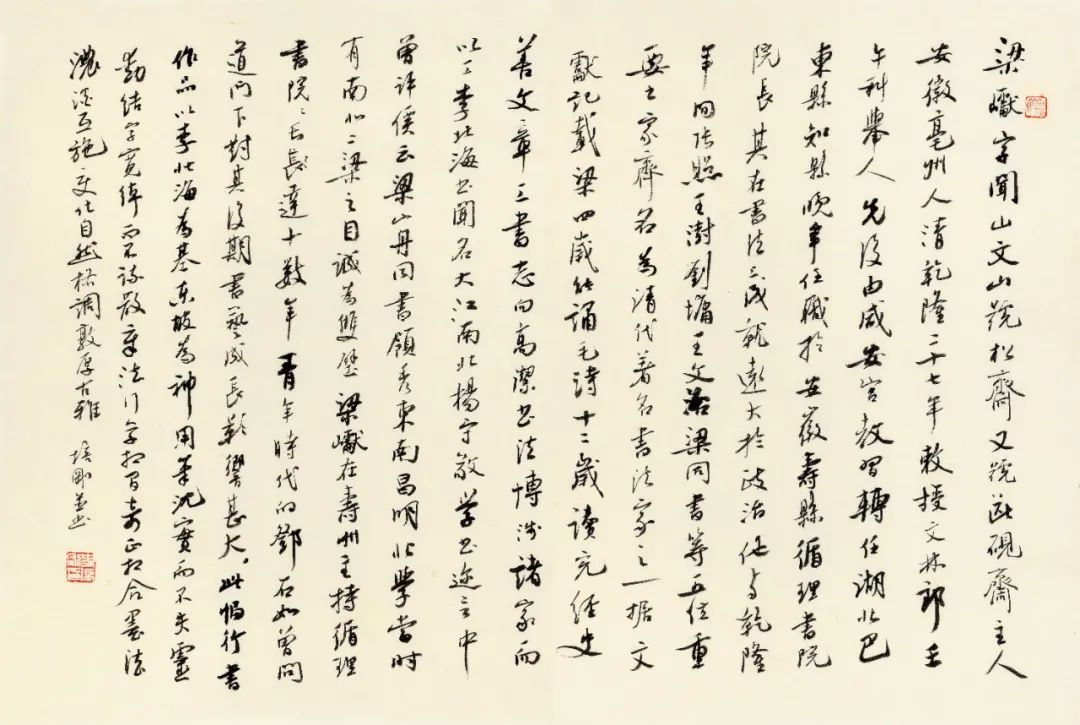 梁巘字聞山文山號松齋又號㴓硯齋主人
安徽亳州人清乾隆二十七年敕授文林郎壬
午科舉人先後由咸安宮教習轉任湖北巴
東縣知縣晚年任職於安徽壽縣循理書院
院長其在書法之成就遠大於政治他與乾隆
年間張照王澍劉墉王文治梁同書等五位重
要書家齊名為清代著名書法家之一據文
獻記載梁四歲能誦毛詩十二歲讀完經史
善文章工書志向高潔書法博涉諸家而
以工李北海書聞名大江南北楊守敬學書邇言中
曾評價云梁山舟同書領秀東南昌明北學當時
有南北二梁之目誠為雙壁梁巘在壽州主持循理
書院院長長達十數年青年時代的鄧石如曾問
道門下對其後期書藝成長影響甚大此幅行書
作品以李北海為基東坡為神用筆沈實而不失靈
動結字寬綽而不疏散章法行氣相間奇正相合墨法
濃淡互施變化自然格調敦厚古雅 培剛並書